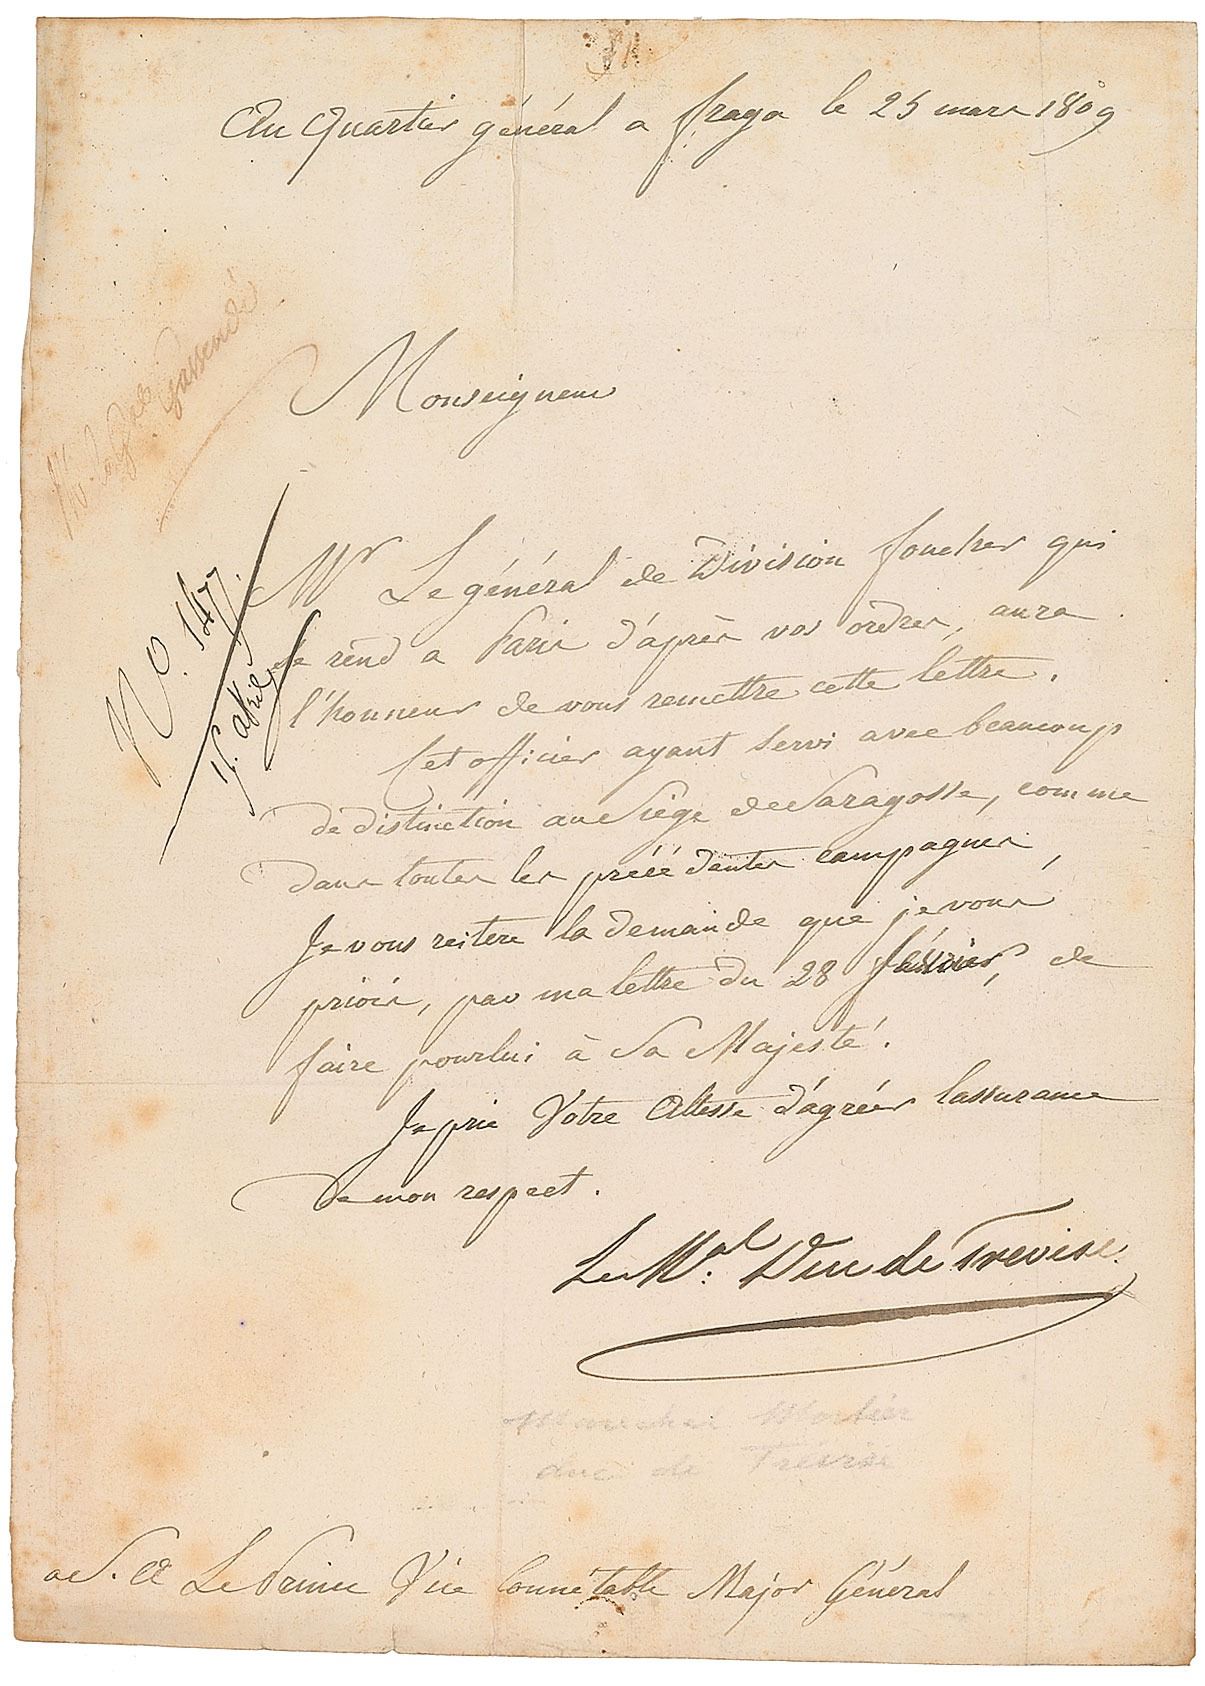 Au Quartier général a fraga le 25 mars 1809
Gassendi
Monseigneur
No. 1477.
15. avril
Mr Le général de Division foucher qui
se rend a Paris d'après vos ordres, aura
l'honneur de vous remettre cette lettre.
Cet officier ayant servi avec beaucoup
de distinction au Siége de Saragosse, comme
dans toutes les précédentes campagnes,
Je vous reitere la demande que je vous
priois, par ma lettre du 28 février, de
faire pour lui à Sa Majesté.
Je prie Votre Altesse d'agréer lassurance
de mon respect.
Le Mal. Duc de Trevise.
Marechal Mortier
duc de Trévise
a S. A Le Prince Vice Connétable Major Général